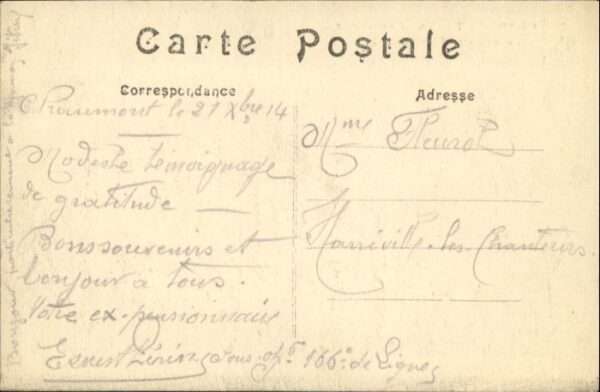 Carte Postale
Correspondance
Adresse
Chaumont le 21 Xbre 14
Modeste témoignage
de gratitude —
Bons souvenirs et
bonjour à tous.
Votre ex-pensionnaire
Ernest sous-off 166e de Ligne
Mme Fleurot
Hanriville-les-Chanteurs.
Bonjour particulièrement à la